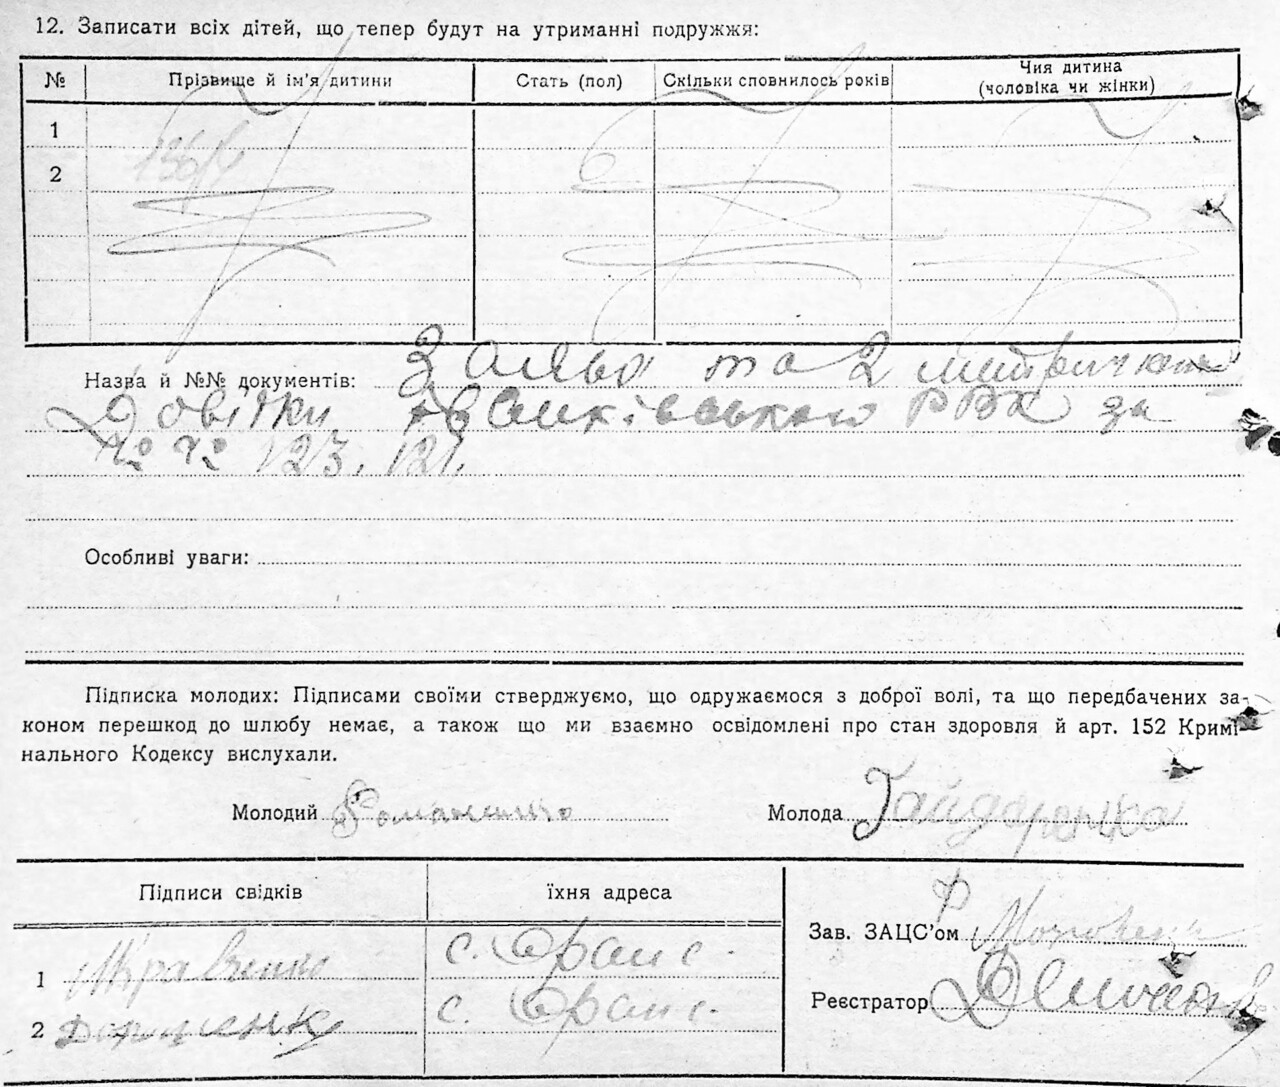 12. Записати всіх дітей, що тепер будут на утриманні подружжя:
№ Прізвище й ім'я дитини Стать (пол) Скільки сповнилось років Чия дитина (чоловіка чи жінки)
1
2
Назва й №№ документів: та 2
Довідки РВК за
№ № 123, 121.
Особливі уваги:
Підписка молодих: Підписами своїми стверджуємо, що одружаємося з доброї волі, та що передбачених за-
коном перешкод до шлюбу немає, а також що ми взаємно освідомлені про стан здоровля й арт. 152 Кримі-
нального Кодексу вислухали.
Молодий Романенко Молода Гайдаренко
Підписи свідків їхня адреса
Зав. ЗАЦС'ом
1 Кравченко с.
Реєстратор
2 с.